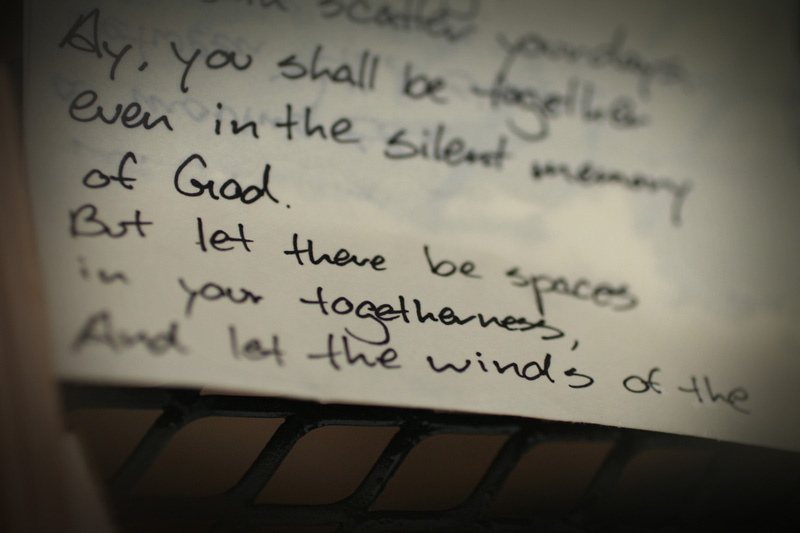 scatter your days.
Ay, you shall be together
even in the silent memory
of God.
But let there be spaces
in your togetherness,
And let the winds of the